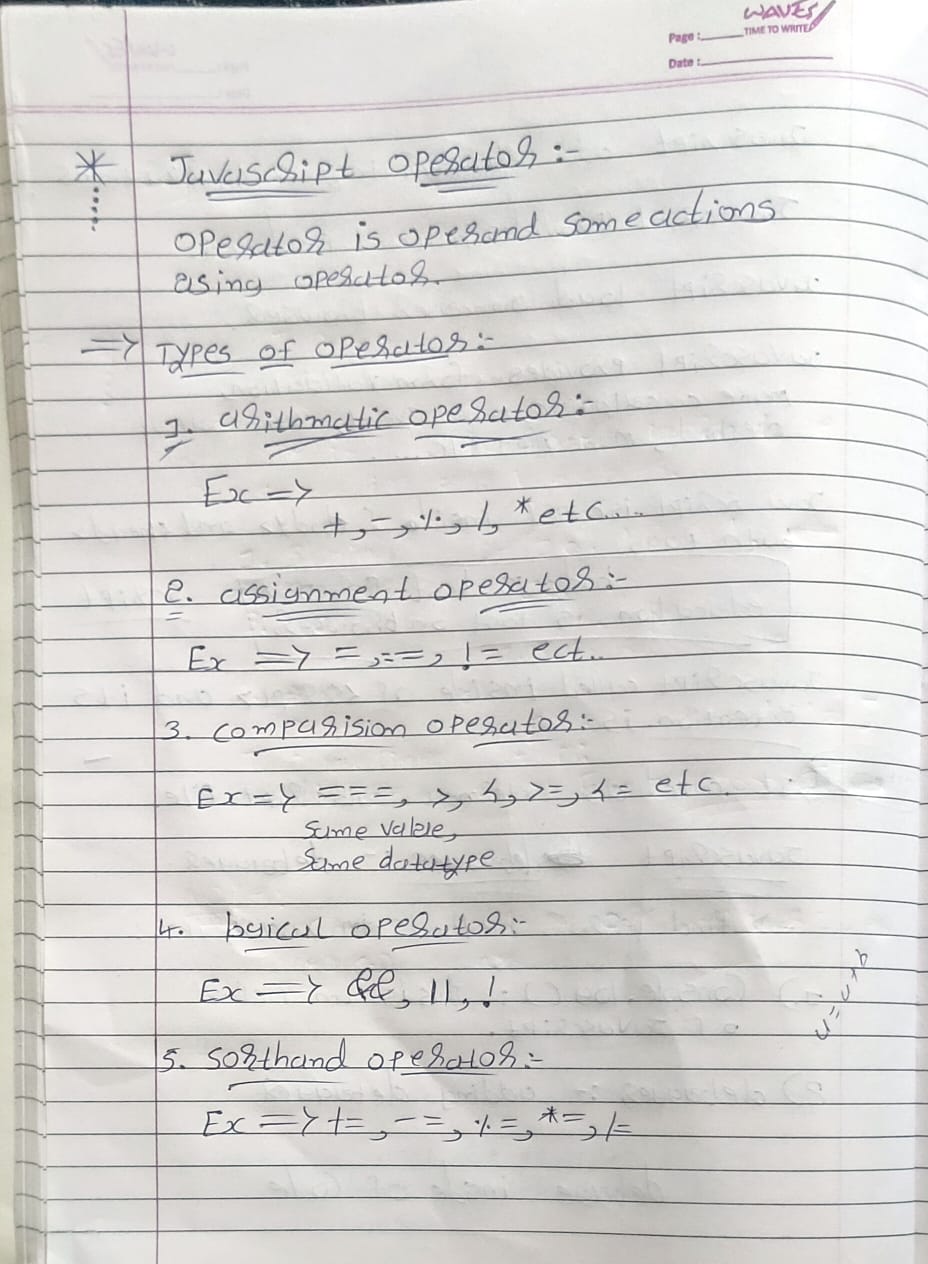 WAVES
TIME TO WRITE
Page :
Date :
* Javascript operator :-
operator is operand some actions
using operator.
=> Types of operator :-
1. arithmatic operator :-
Ex =>
+, -, %, /, * etc....
2. assignment operator :-
Ex => =, ==, != ect..
3. comparision operator :-
Ex => ===, >, <, >=, <= etc.
same value,
same datatype
4. logical operator :-
Ex => &&, ||, !
5. sorthand operator :-
Ex => +=, -=, %=, *=, /=